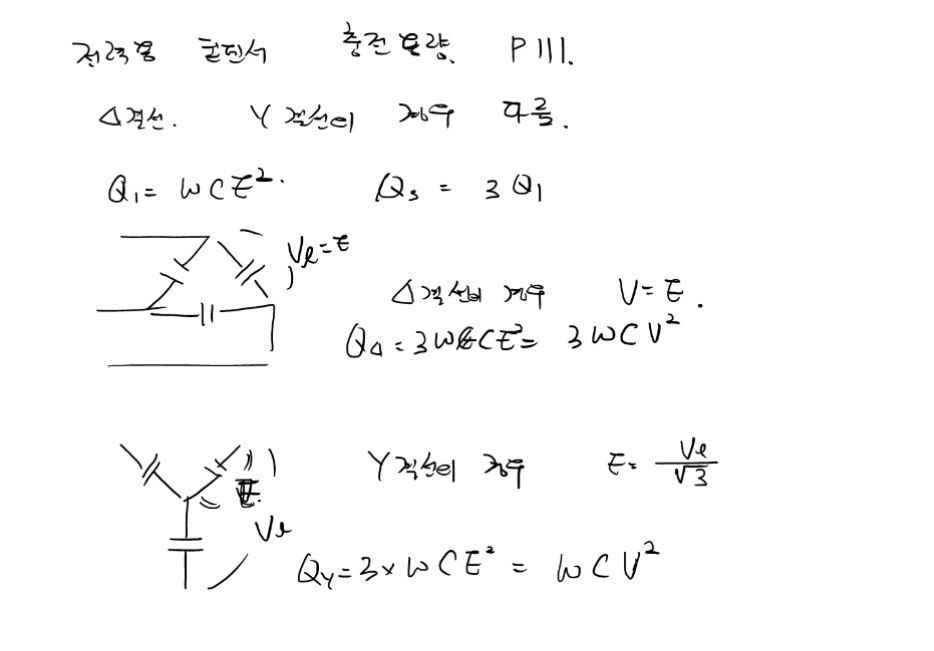 전력용 콘덴서 충전용량. P 111.
△결선. Y 결선이 경우 다름.
Q₁= WCE². Q₃ = 3Q₁
Vℓ=E
△결선의 경우 V=E.
Q△ = 3WCE²= 3WCV²
Y결선이 경우 E= Vℓ/√3
E.
Vℓ
QY=3×WCE² = WCV²